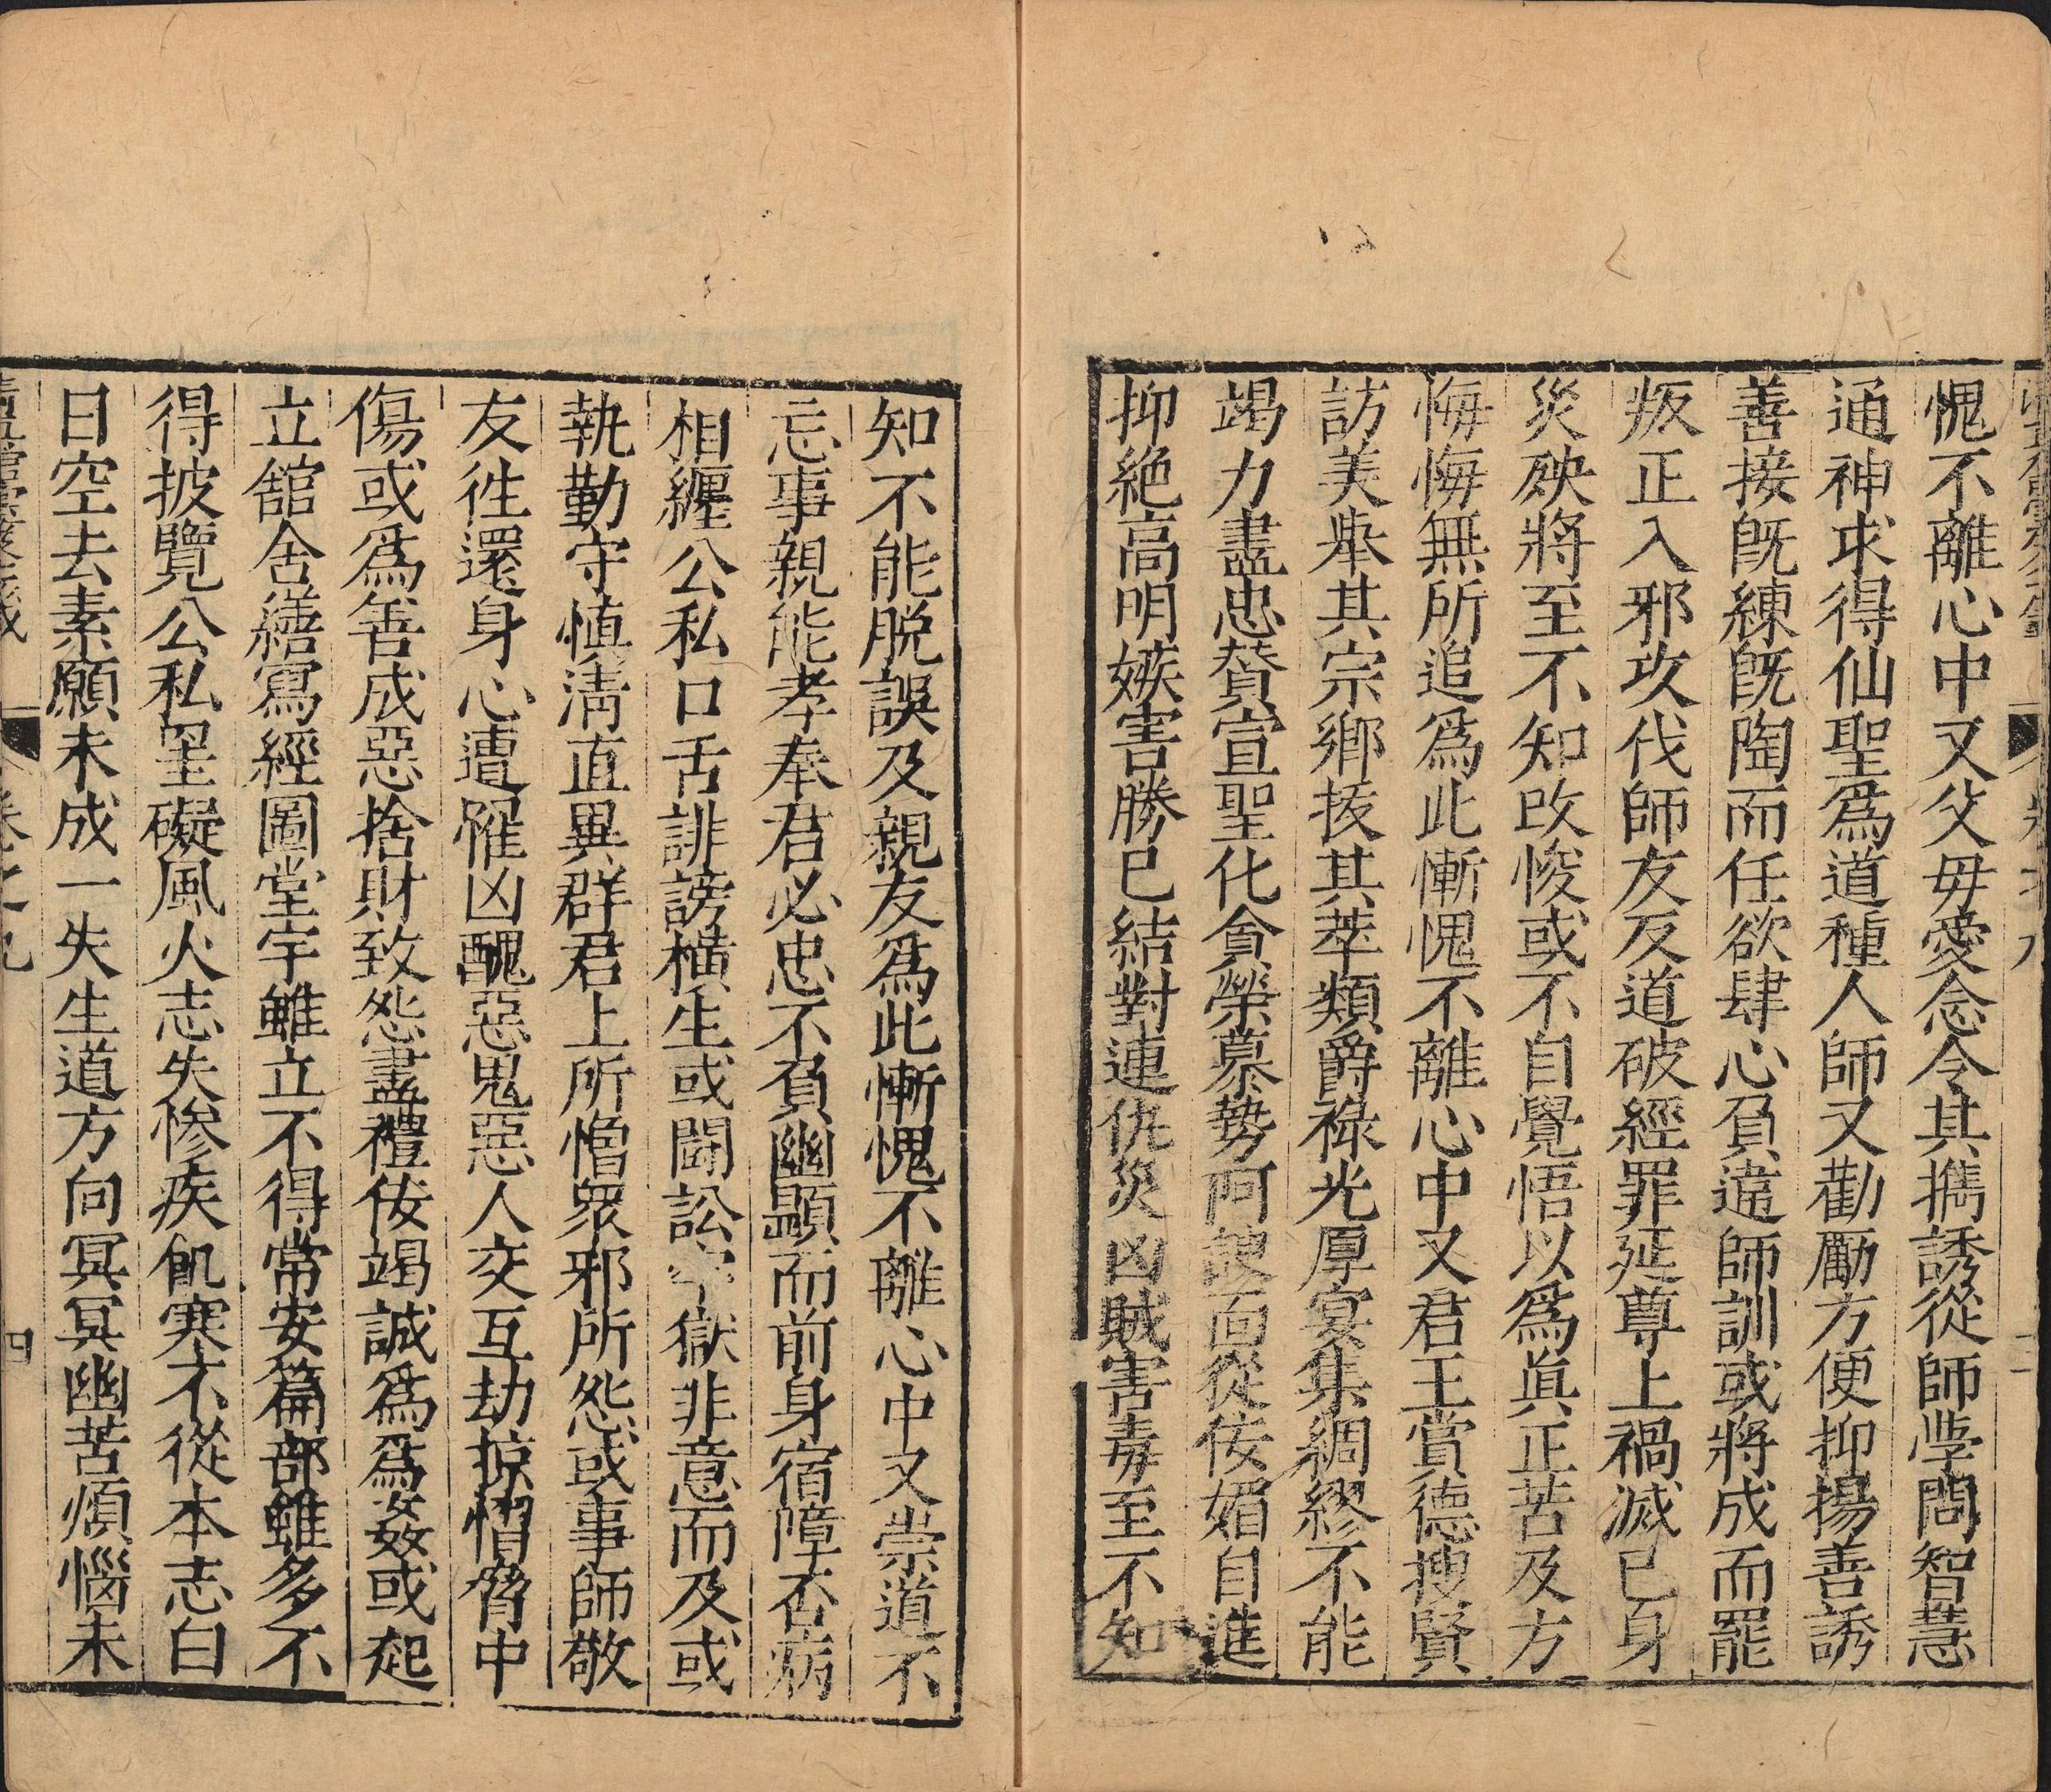 愧不離心中又父毋愛念令其擕誘從師學問智慧
通神求得仙聖爲道種人師又勸勵方便抑揚善誘
善接旣練旣陶而任欲肆心負違師訓或將成而罷
叛正入邪攻伐師友反道破經罪延尊上禍滅已身
災殃將至不知改悛或不自覺悟以爲眞正苦及方
悔悔無所追爲此慚愧不離心中又君王賞德搜賢
訪美舉其宗鄉拔其萃類爵祿光厚宴集綢繆不能
竭力盡忠賛宣聖化貪榮慕勢阿諛面從佞媚自進
抑絶高明嫉害勝已結對連仇災凶賊害毒至不知
知不能脱誤及親友爲此慚愧不離心中又崇道不
忘事親能孝奉君必忠不負幽顯而前身宿障否病
相纒公私口舌誹謗橫生或鬪訟獄非意而及或
執勤守愼淸直異群君上所憎衆邪所怨或事師敬
友徃還身心遭罹凶醜惡鬼惡人交互劫掠慴脅中
傷或爲善成惡捨財致怨盡禮佞竭誠爲爲姦或起
立舘舍繕寫經圖堂宇雖立不得常安篇部雖多不
得披覽公私罣礙風火志失慘疾飢寒不從本志白
日空去素願未成一失生道方向冥冥幽苦煩惱未
卷之九
四